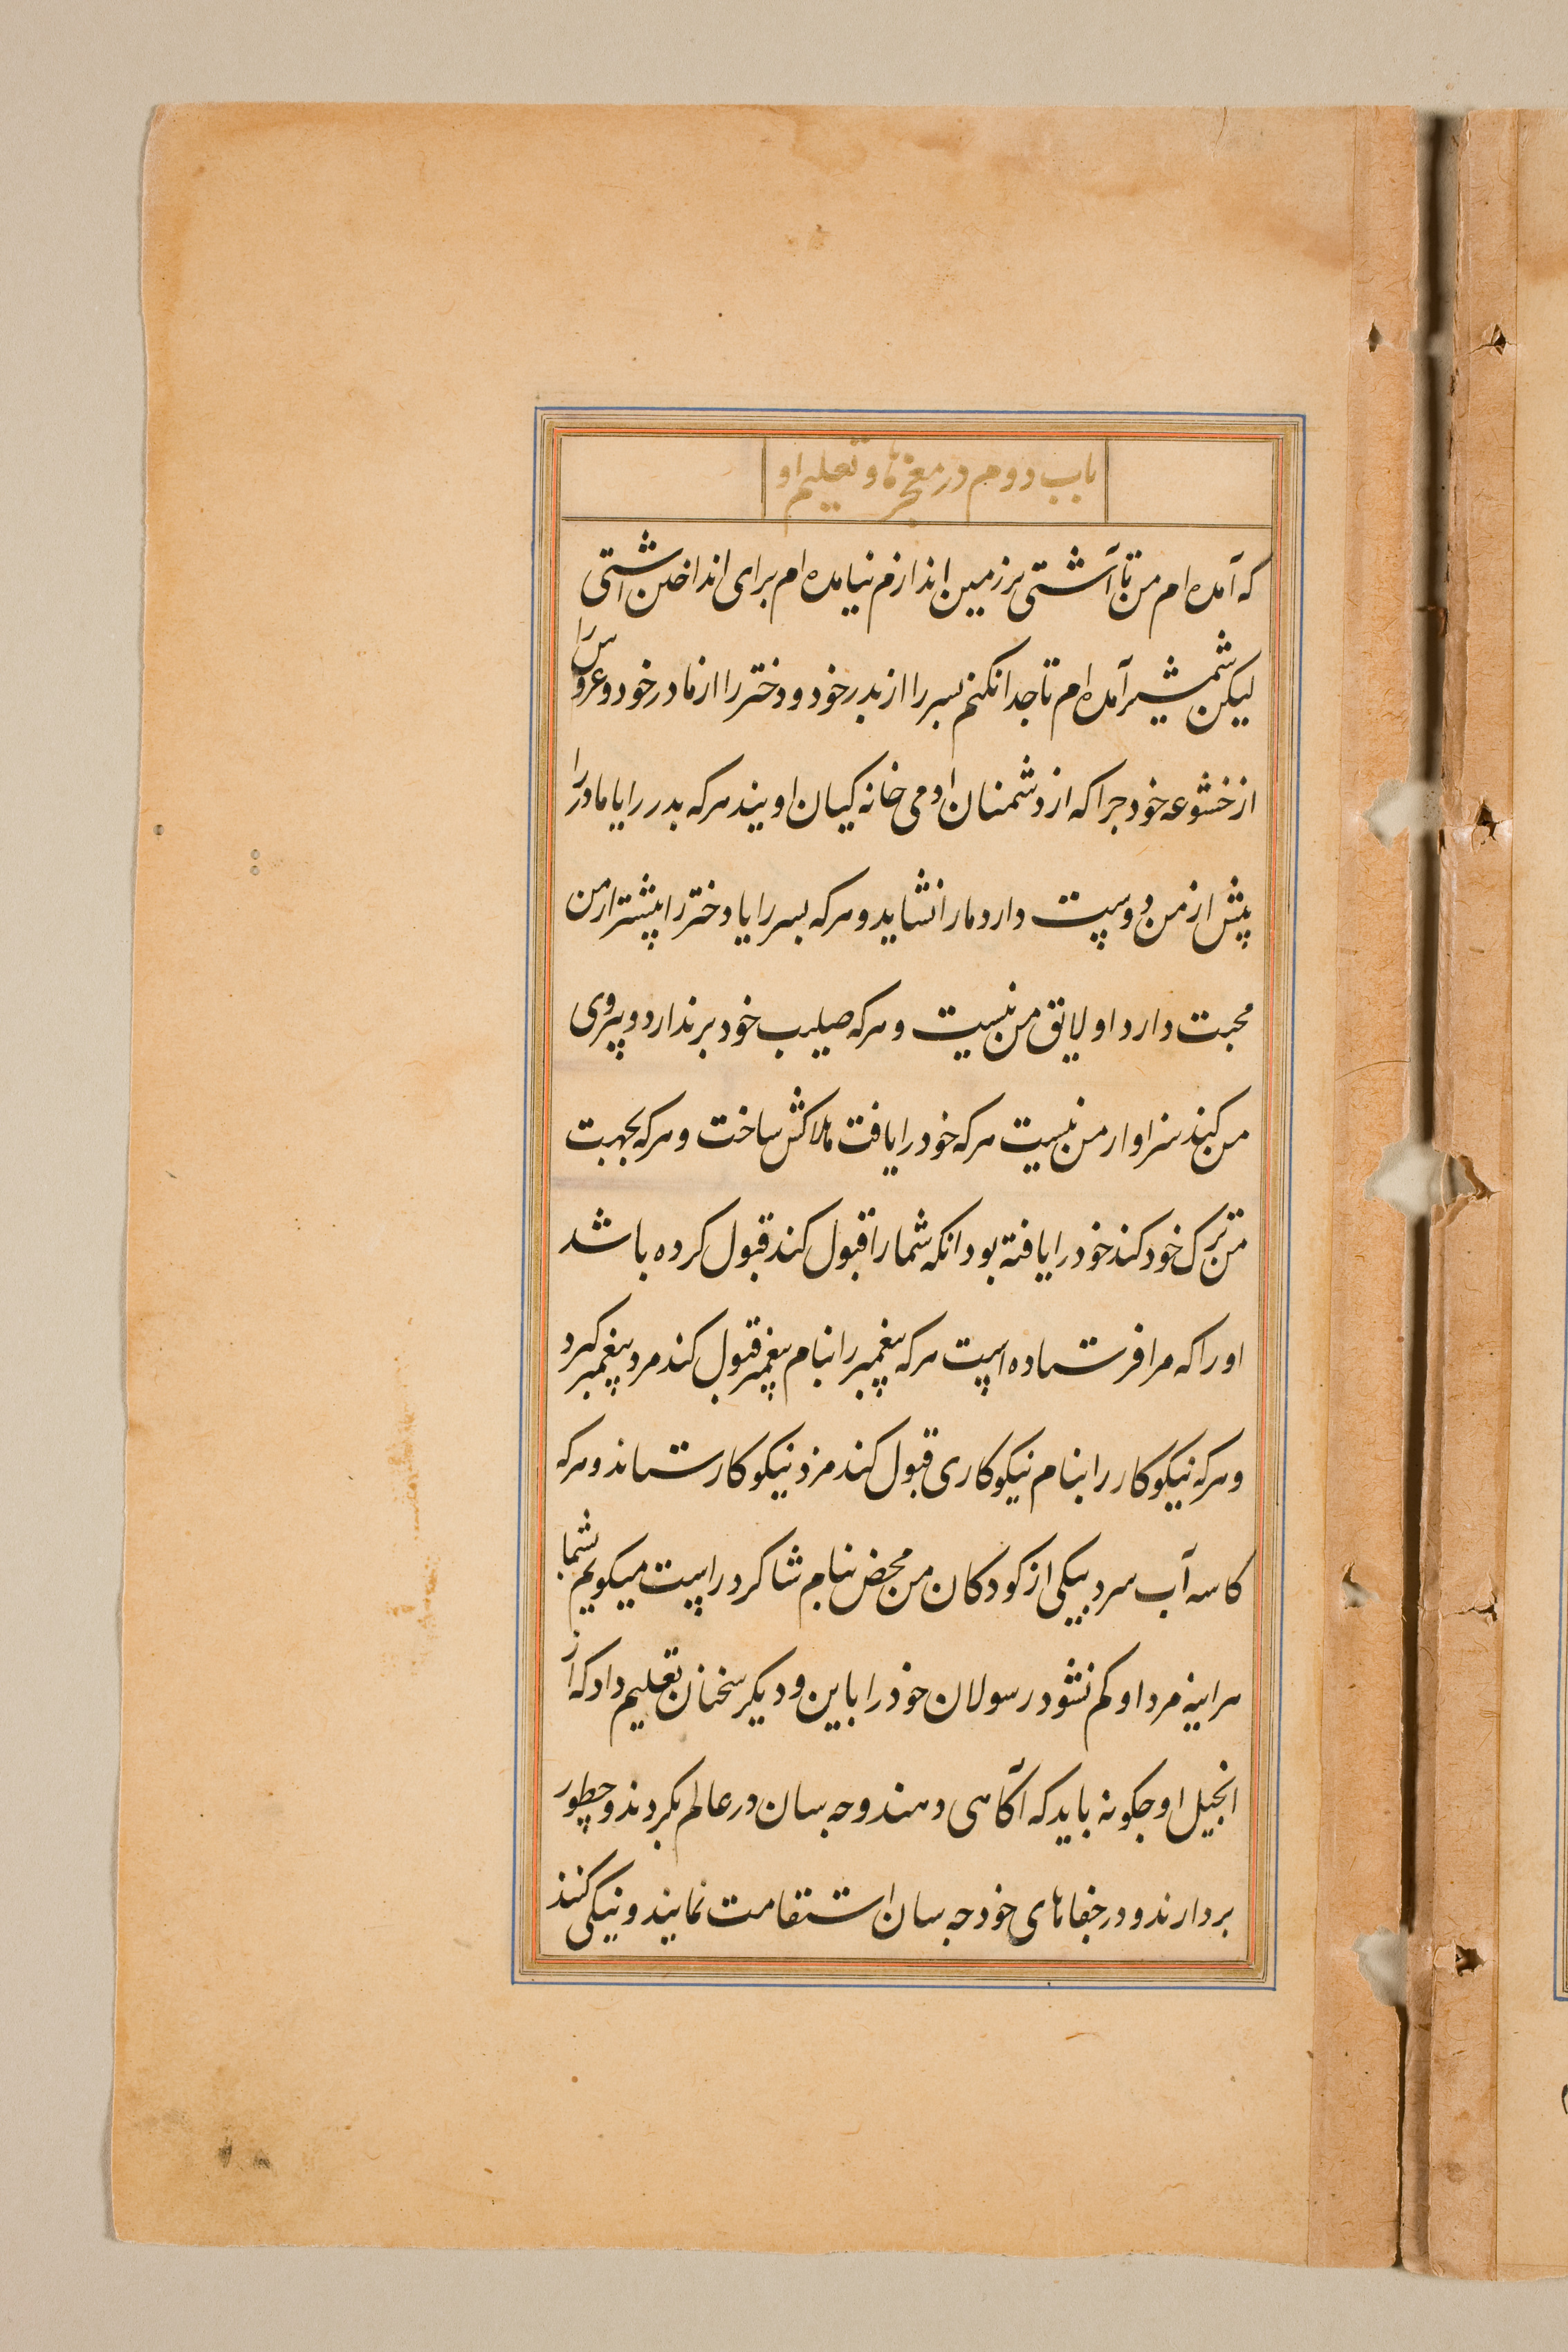 باب دوم در معجزها و تعلیم او
که آمده ام من تا آشتی بر زمین اندازم نیامده ام برای انداختن آشتی
لیکن شمشیر آمده ام تا جدا نکنم پسر را از پدر خود و دختر را از مادر خود و عروس را
از خشوعه خود چرا که از دشمنان ادمی خانه کیان اویند هر که پدر را یا مادر را
پیش از من دوست دارد مارا نشاید و هر که پسر را یا دختر را پیشتر از من
محبت دارد او لایق من نیست و هر که صلیب خود برندارد و پیروی
من کند سزاوار من نیست هر که خود را یافت هلاکش ساخت و هر که بجهت
من ترک خود کند خود را یافته بود انکه شما را قبول کند قبول کرده باشد
او را که مرا فرستاده است هر که پیغمبر را بنام پیغمبر قبول کند مزد پیغمبر کیرد
و هر که نیکوکار را بنام نیکوکاری قبول کند مزد نیکوکار ستاند و هر که
کاسه آب سرد بیکی از کودکان من محض بنام شاکرد راست میکویم بشما
هراینه مزد او کم نشود رسولان خود را باین و دیکر سخنان تعلیم داد که از
انجیل او چکونه باید که آکاهی دهند و چه سان در عالم بکردند و چطور
بردارند و در جفاهای خود چه سان استقامت نمایند و نیکی کنند